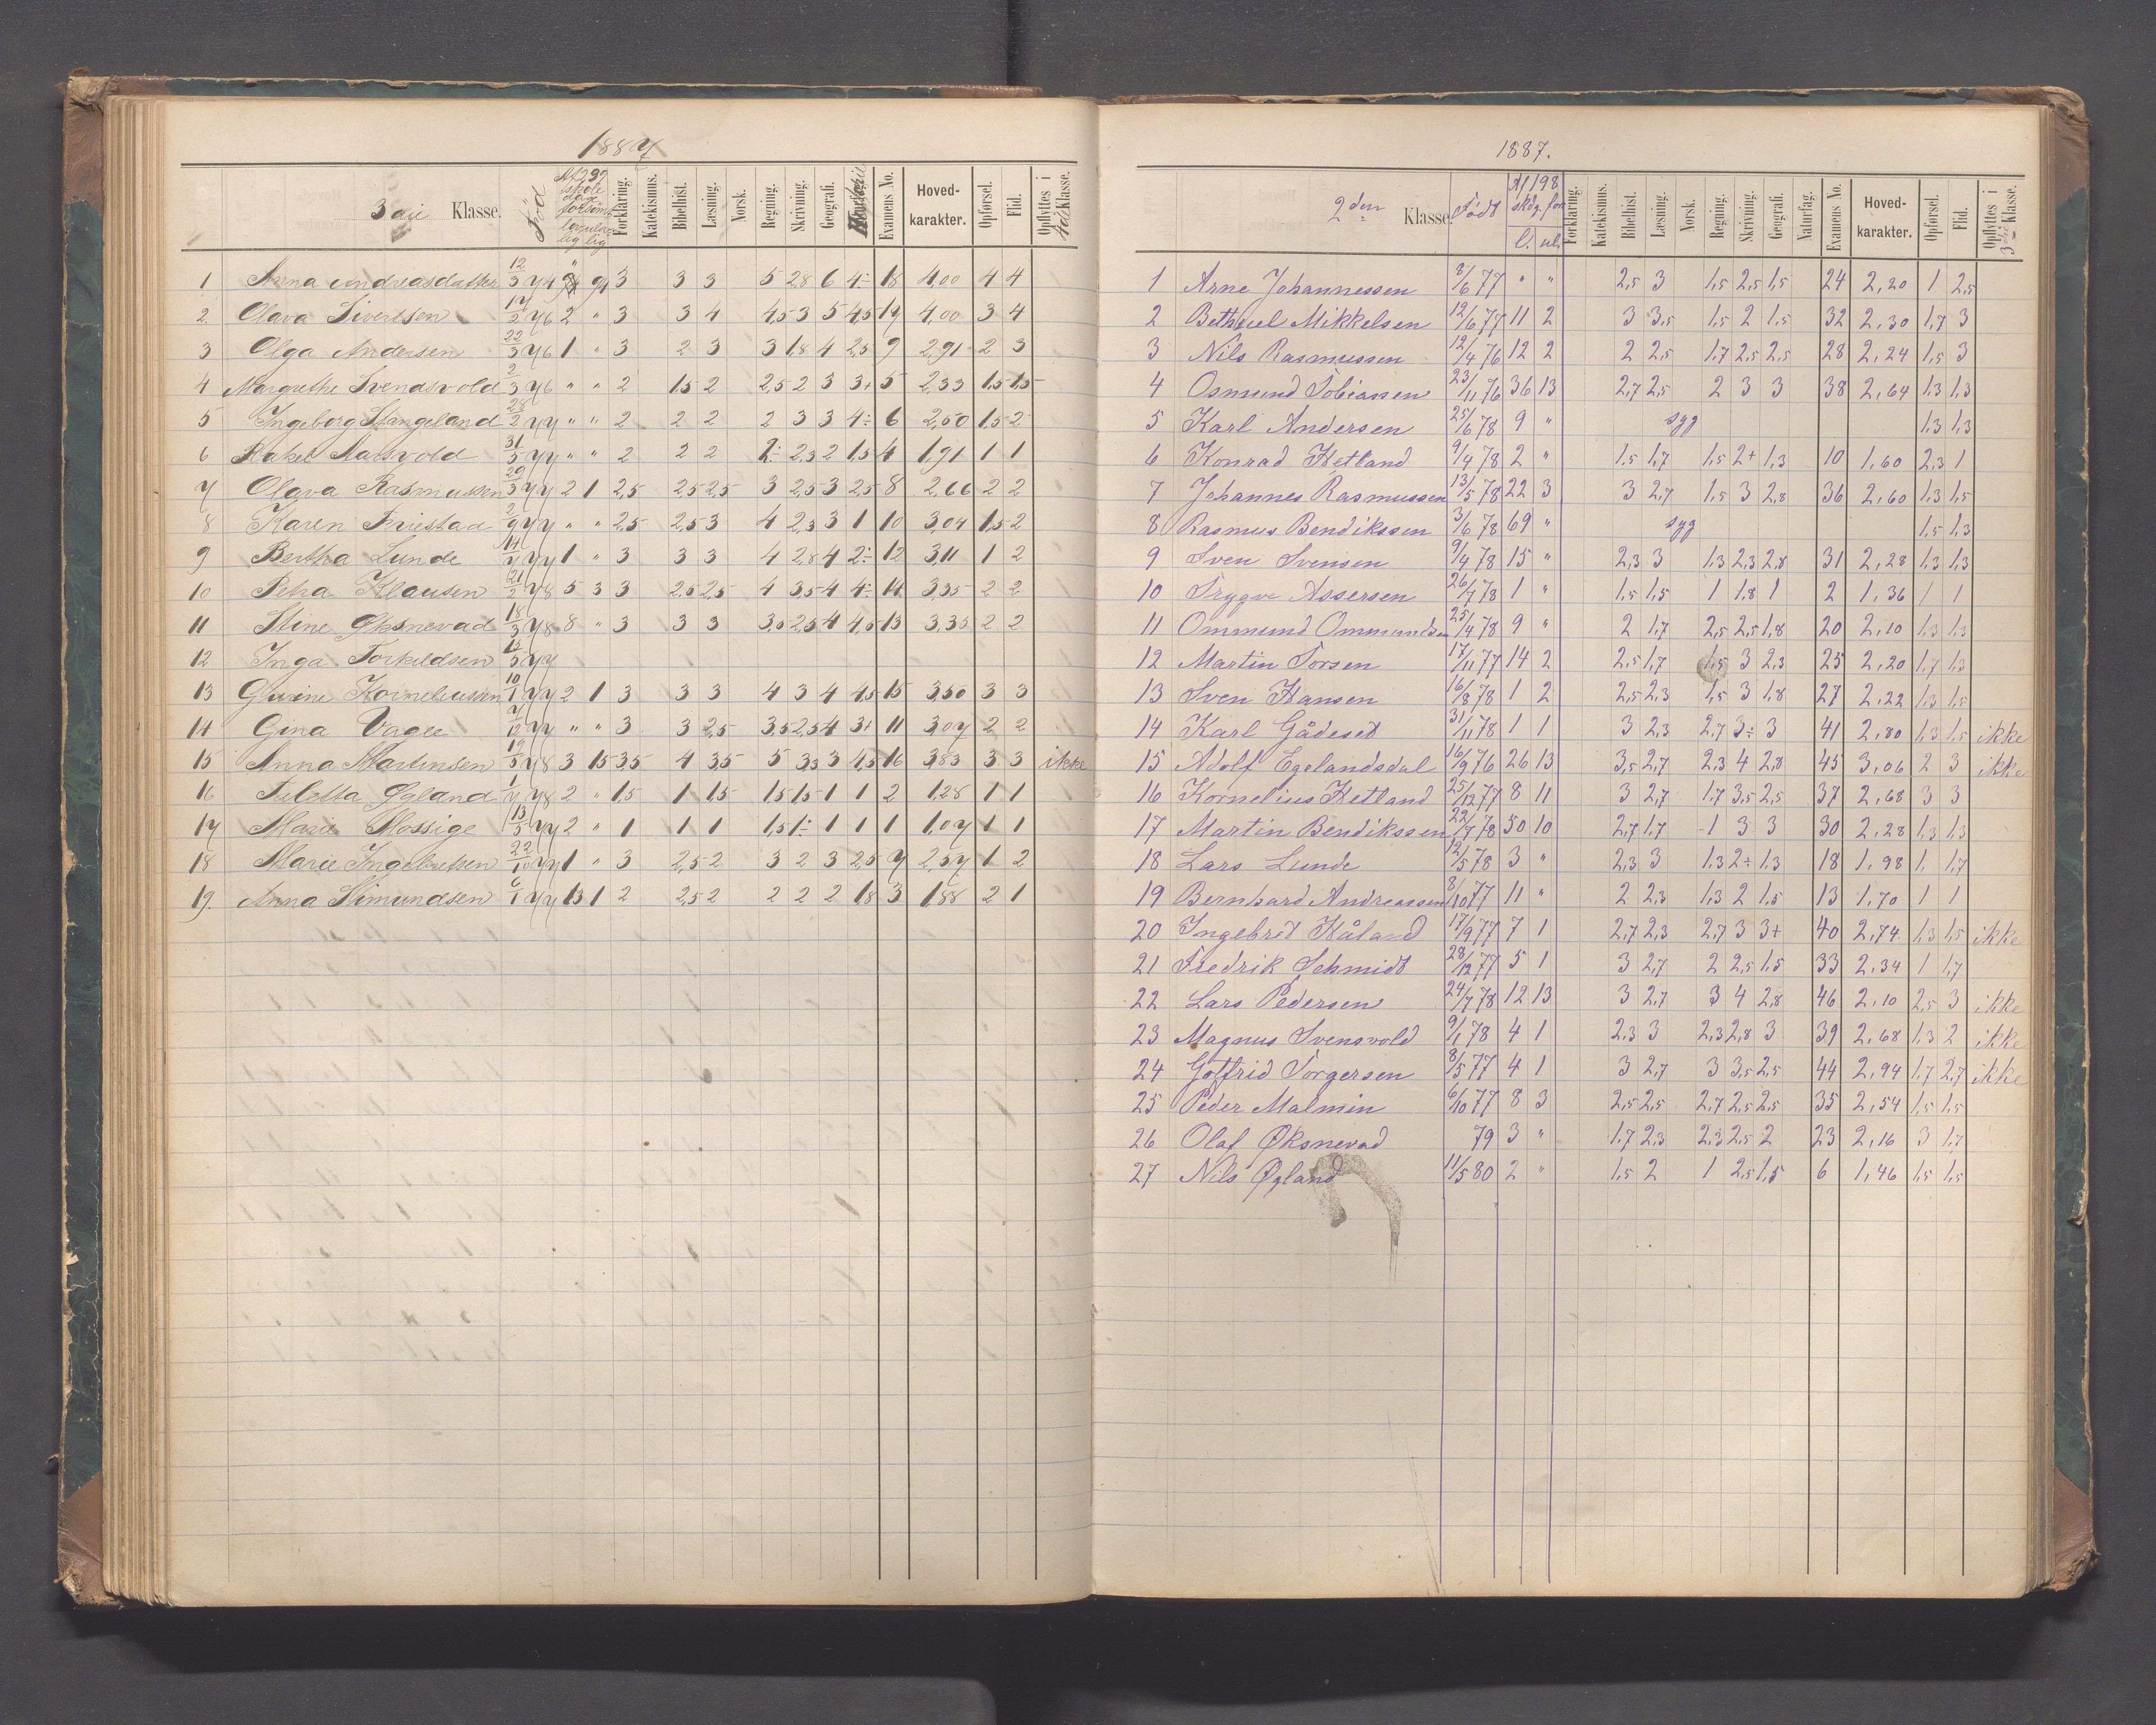 1887
3die Klasse. Född Af 239 skole dage forsömt lovlig ulovlig Forklaring. Katekismus. Bibelhist. Læsning. Norsk. Regning. Skrivning. Geografi. Examens No. Hoved-karakter. Opførsel. Flid. Opflyttes i 4de Klasse.
1 Anna Andreasdatter 3 3 3 5 2,8 6 4÷ 18 4,00 4 4
2. Olava Sivertsen 76 2 " 3 3 4 4,5 3 5 4,5 19 4,00 3 4
3 Olga Andersen 22/3 76 1 " 3 2 3 3 1,8 4 2,5 9 2,91 2 3
4 Margrethe Svendsvold 2/3 76 " " 2 1,5 2 2,5 2 3 3+ 5 2,33 1,5 1,5
5 Ingeborg Stangeland 28/2 77 " " 2 2 2 2 3 3 4÷ 6 2,50 1,5 2
6 Rakel Matsvold 31/5 77 " " 2 2 2 2÷ 2,3 2 1,5 4 1,91 1 1
7 Olava Rasmussen 29/3 77 2 1 2,5 2,5 2,5 3 2,5 3 2,5 8 2,66 2 2
8 Karen Friestad 2/9 77 " " 2,5 2,5 3 4 2,3 3 1 10 3,04 1,5 2
9 Bertha Lunde 77 1 " 3 3 3 4 2,8 4 2÷ 12 3,11 1 2
10 Petra Klausen 21/2 78 5 3 3 2,5 2,5 4 3,5 4 4÷ 14 3,35 2 2
11 Stine Øksnevad 18/3 78 8 " 3 3 3 3,5 2,5 4 4,5 13 3,35 2 2
12 Inga Torkildsen 77
13 Gurine Korneliussen 10/1 77 2 1 3 3 3 4 3 4 4,5 15 3,50 3 3
14 Gina Vagle 77 " " 3 3 2,5 3,5 2,5 4 3+ 11 3,07 2 2
15 Anna Martinsen 19/5 78 3 15 3,5 4 3,5 5 3,3 3 4,5 16 3,83 3 3 ikke
16 Tuletta Øgland 78 2 " 1,5 1 1,5 1,5 1,5 1 1 2 1,28 1 1
17 Marie Mossige 13/5 77 2 " 1 1 1 1,5 1÷ 1 1 1 1,07 1 1
18 Marie Ingebretsen 22/10 77 1 " 3 2,5 2 3 2 3 2,5 7 2,57 1 2
19. Anna Simundsen 77 13 1 2 2,5 2 2 2 2 1,8 3 1,88 2 1
1887.
2den Klasse Født Af 198 skdg. for l. ul. Forklaring. Katekismus. Bibelhist. Læsning. Norsk. Regning. Skrivning. Geografi. Naturfag. Examens No. Hoved-karakter. Opførsel. Flid. Opflyttes i 3die Klasse.
1 Arne Johannessen 8/6 77 " " 2,5 3 1,5 2,5 1,5 24 2,20 1 2,5
2 Bethuel Mikkelsen 12/6 77 11 2 3 3,5 1,5 2 1,5 32 2,30 1,7 3
3 Nils Rasmussen 12/4 76 12 2 2 2,5 1,7 2,5 2,5 28 2,24 1,5 3
4 Osmund Tobiassen 23/11 76 36 13 2,7 2,5 2 3 3 38 2,64 1,3 1,3
5 Karl Andersen 25/6 78 9 " syg 1,3 1,3
6 Konrad Hetland 9/4 78 2 " 1,5 1,7 1,5 2+ 1,3 10 1,60 2,3 1
7 Johannes Rasmussen 13/5 78 22 3 3 2,7 1,5 3 2,8 36 2,60 1,3 1,5
8 Rasmus Bendikssen 3/6 78 69 " syg 1,5 1,3
9 Sven Svensen 9/4 78 15 " 2,3 3 1,3 2,3 2,8 31 2,28 1,3 1,3
10 Trygve Assersen 26/7 78 1 " 1,5 1,5 1 1,8 1 2 1,36 1 1
11 Ommund Ommundsen 25/4 78 9 " 2 1,7 2,5 2,5 1,8 20 2,10 1,3 1,3
12 Martin Torsen 17/11 77 14 2 2,5 1,7 1,5 3 2,3 25 2,20 1,7 1,3
13 Sven Hansen 16/8 78 1 2 2,5 2,3 1,5 3 1,8 27 2,22 1,3 1,5
14 Karl Gådesed 31/11 78 1 1 3 2,3 2,7 3÷ 3 41 2,80 1,3 1,5 ikke
15 Adolf Egelandsdal 16/9 76 26 13 3,5 2,7 2,3 4 2,8 45 3,06 2 3 ikke
16 Kornelius Hetland 25/12 77 8 11 3 2,7 1,7 3,5 2,5 37 2,68 3 3
17 Martin Bendikssen 22/7 78 50 10 2,7 1,7 1 3 3 30 2,28 1,3 1,3
18 Lars Lunde 12/5 78 3 " 2,3 3 1,3 2÷ 1,3 18 1,98 1, 1,7
19 Bernhard Andreassen 8/10 77 11 " 2 2,3 1,3 2 1,5 13 1,70 1 1
20 Ingebret Håland 17/9 77 7 1 2,7 2,3 2,7 3 3+ 40 2,74 1,3 1,5 ikke
21 Fredrik Schmidt 28/12 77 5 1 3 2,7 2 2,5 1,5 33 2,34 1 1,7
22 Lars Pedersen 24/7 78 12 13 3 2,7 3 4 2,8 46 2,10 2,5 3 ikke
23 Magnus Svensvold 9/1 78 4 1 2,3 3 2,3 2,8 3 39 2,68 1,3 2 ikke
24 Gotfrid Torgersen 8/5 77 4 1 3 2,7 3 3,5 2,5 44 2,94 1,7 2,7 ikke
25 Peder Malmin 6/10 77 8 3 2,5 2,5 2,7 2,5 2,5 35 2,54 1,5 1,5
26 Olaf Øksnevad 79 3 " 1,7 2,3 2,3 2,5 2 23 2,16 3 1,7
27 Nils Øgland 11/5 80 2 " 1,5 2 1 2,5 1,5 6 1,46 1,5 1,5